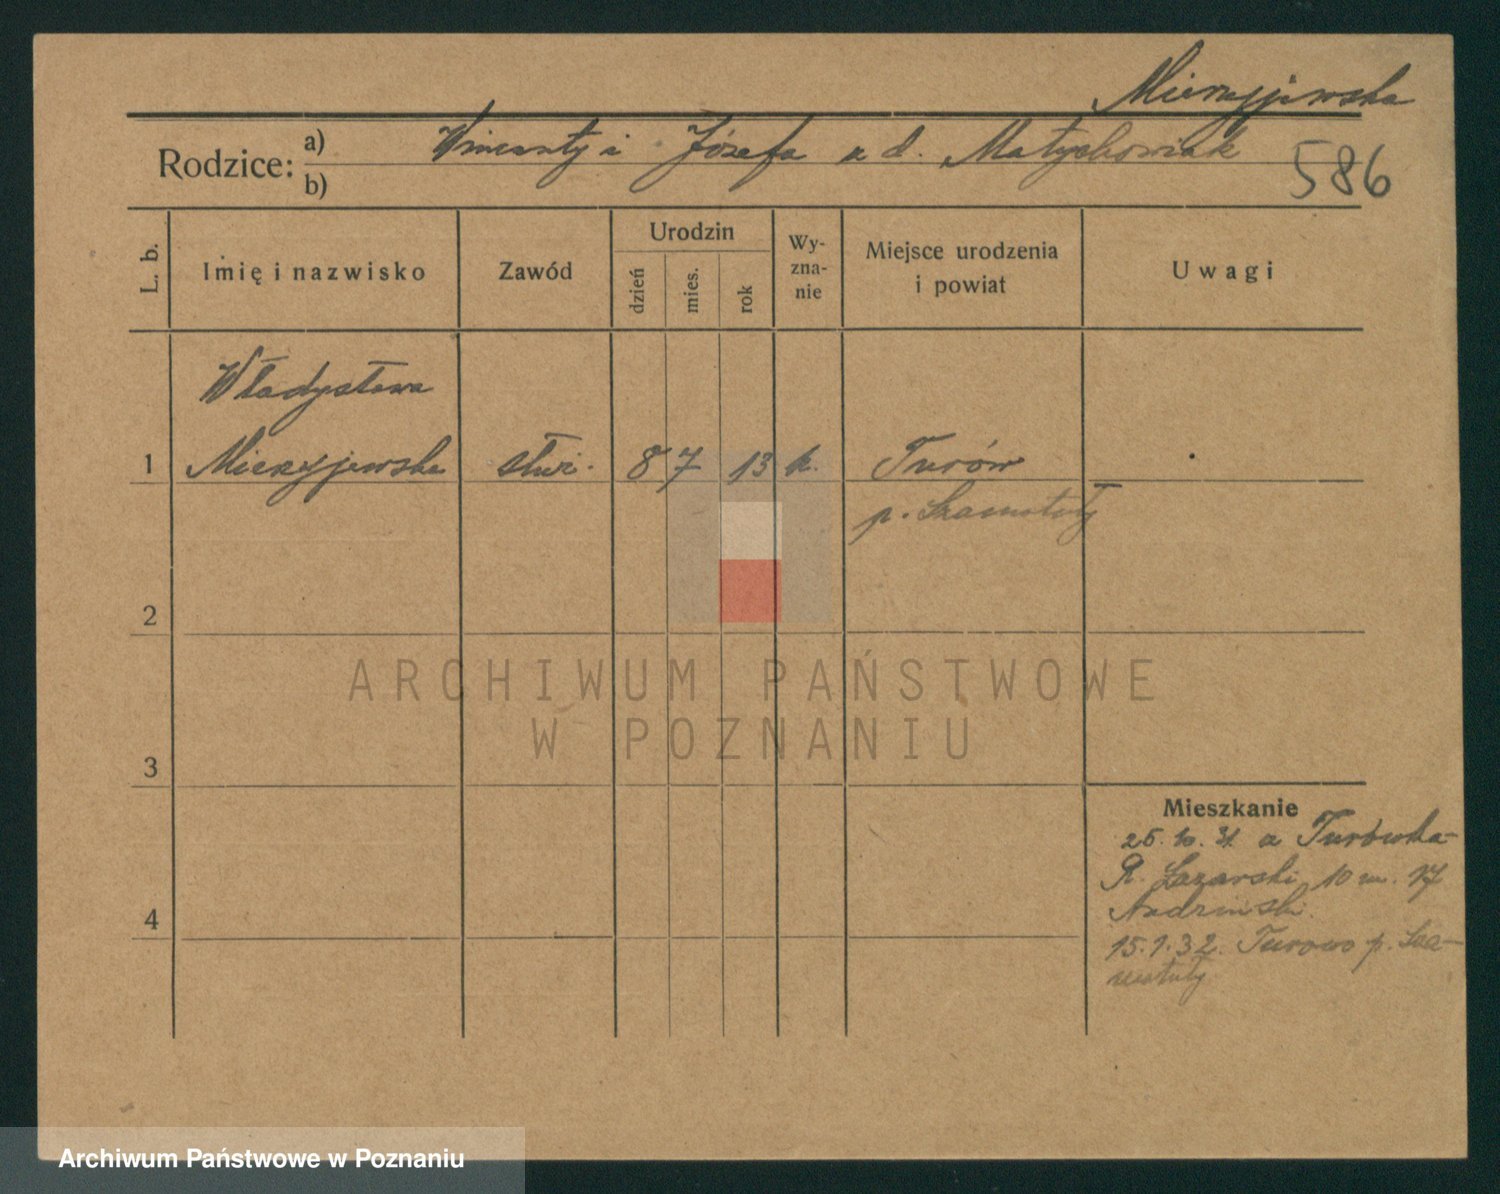 Mierzyjewska
Rodzice: a) Wincenty i Józefa u d. Matychowiak
b)
586
L. b.
Imię i nazwisko
Zawód
Urodzin
dzień
mies.
rok
Wy-
zna-
nie
Miejsce urodzenia
i powiat
Uwagi
Władysława
1 Mierzyjewska służ. 8 7 13 k. Turów
p. Szamotuły
2
ARCHIWUM PAŃSTWOWE
W POZNANIU
3
Mieszkanie
25. 10. 31. z Turówka-
R. Łazarski 10 m. 17
4
15.1.32. Turowo p. Sza-
motuły
Archiwum Państwowe w Poznaniu